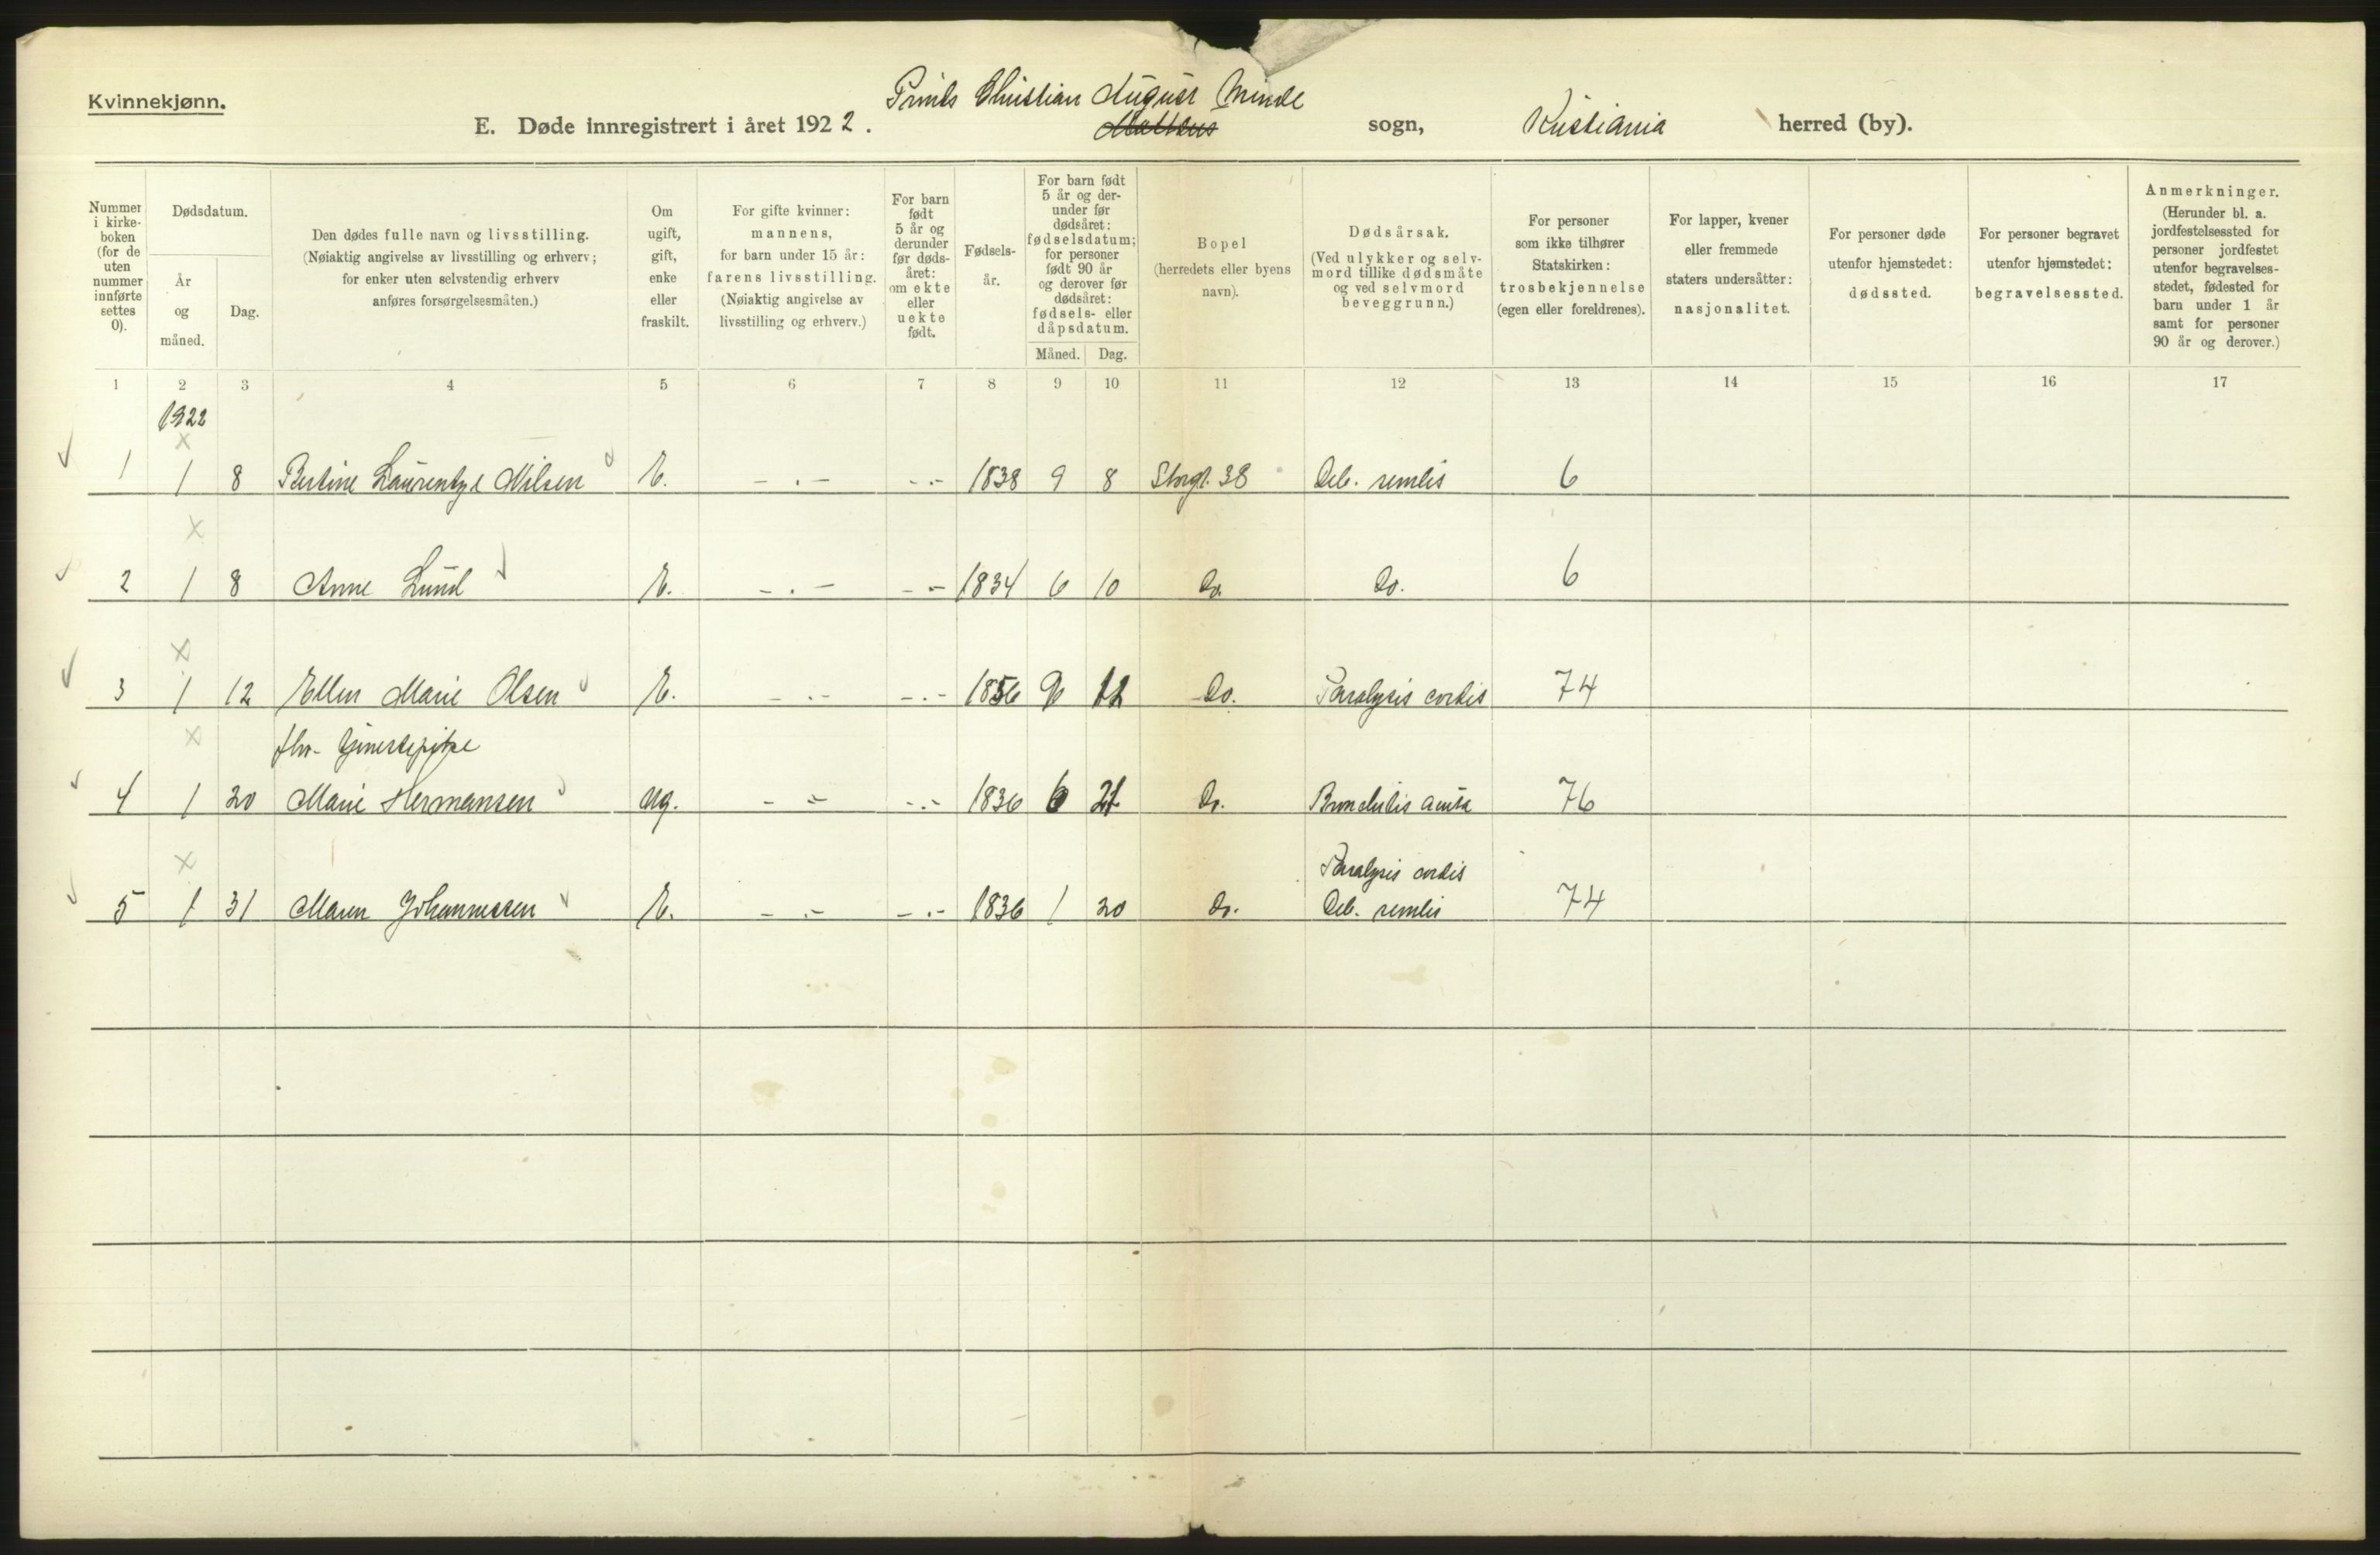 Kvinnekjønn.
Prinds Christian August Minde
E. Døde innregistrert i året 1922. Matteus sogn, Kristiania herred (by).
Nummer i kirkeboken (for de uten nummer innførte settes 0).
Dødsdatum.
År og måned.
Dag.
Den dødes fulle navn og livsstilling.
(Nøiaktig angivelse av livsstilling og erhverv;
for enker uten selvstendig erhverv
anføres forsørgelsesmåten.)
Om ugift, gift, enke eller fraskilt.
For gifte kvinner:
mannens,
for barn under 15 år:
farens livsstilling.
(Nøiaktig angivelse av
livsstilling og erhverv.)
For barn født 5 år og derunder før dødsåret: om ekte eller uekte født.
Fødselsår.
For barn født
5 år og derunder før
dødsåret:
fødselsdatum;
for personer
født 90 år
og derover før
dødsåret:
fødsels- eller
dåpsdatum.
Måned. Dag.
Bopel
(herredets eller byens
navn).
Dødsårsak.
(Ved ulykker og selvmord tillike dødsmåte
og ved selvmord
beveggrunn.)
For personer
som ikke tilhører
Statskirken:
trosbekjennelse
(egen eller foreldrenes).
For lapper, kvener
eller fremmede
staters undersåtter:
nasjonalitet.
For personer døde
utenfor hjemstedet:
dødssted.
For personer begravet
utenfor hjemstedet:
begravelsessted.
Anmerkninger.
(Herunder bl. a.
jordfestelsessted for
personer jordfestet
utenfor begravelsesstedet, fødested for
barn under 1 år
samt for personer
90 år og derover.)
1 2 3 4 5 6 7 8 9 10 11 12 13 14 15 16 17
1922
1 1 8 Bertine Laurentze Nilsen E. - . - - . - 1838 9 8 Storgt. 38 Deb. senilis 6
2 1 8 Anne Lund E. - . - - - 1834 6 10 Do. Do. 6
3 1 12 Ellen Marie Olsen E. - . - - . - 1856 9 12 Do. Paralysis cordis 74
fhv. tjenestepike
4 1 20 Marie Hermansen Ug. - - - . - 1836 6 21 Do. Bronchitis acuta 76
Paralysis cordis
5 1 31 Maren Johannessen E. - . - - . - 1836 1 20 Do. Deb. senilis 74